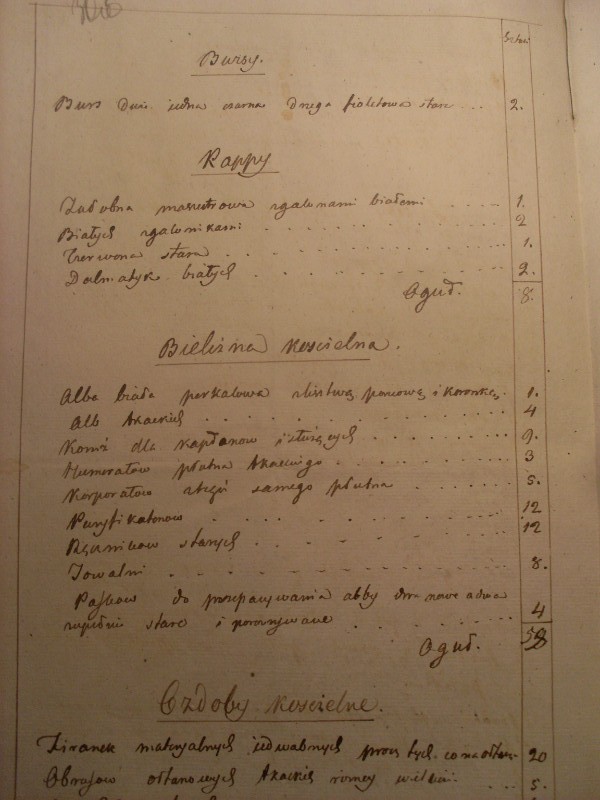 Bursy.
Burs dwie jedna czarna druga fioletowa stare . . . 2.
Kappy
zgalonami białemi . . . . 1.
Białych zgalonikami . . . . . . . 2
Czerwona stara . . . . . . . 1.
Dalmatyk białych . . . . . . . 2.
Oguł. 8.
Bielizna kościelna.
Alba biała perkalowa i koronką 1.
Alb tkackich . . . . . . . 4
Komż dla kapłanow i służących . . . . . 9.
Humerałów płutna tkackiego . . . . . . . 3
Korporałów tegoż samego płutna . . . . . 5.
Puryfikatorow . . . . . . . 12
Ręcznikow starych . . . . . . . 12
Towalni . . . . . . . 8.
Paskow do przepasywania alby dwa nowe a dwa
zupełnie stare i porozrywane . . . . . 4
Oguł. 58
Ozdoby kościelne.
Firanek materyalnych jedwabnych procz tych co na ołtarz. 20
Obrazow ołtarzowych tkackiej 5.